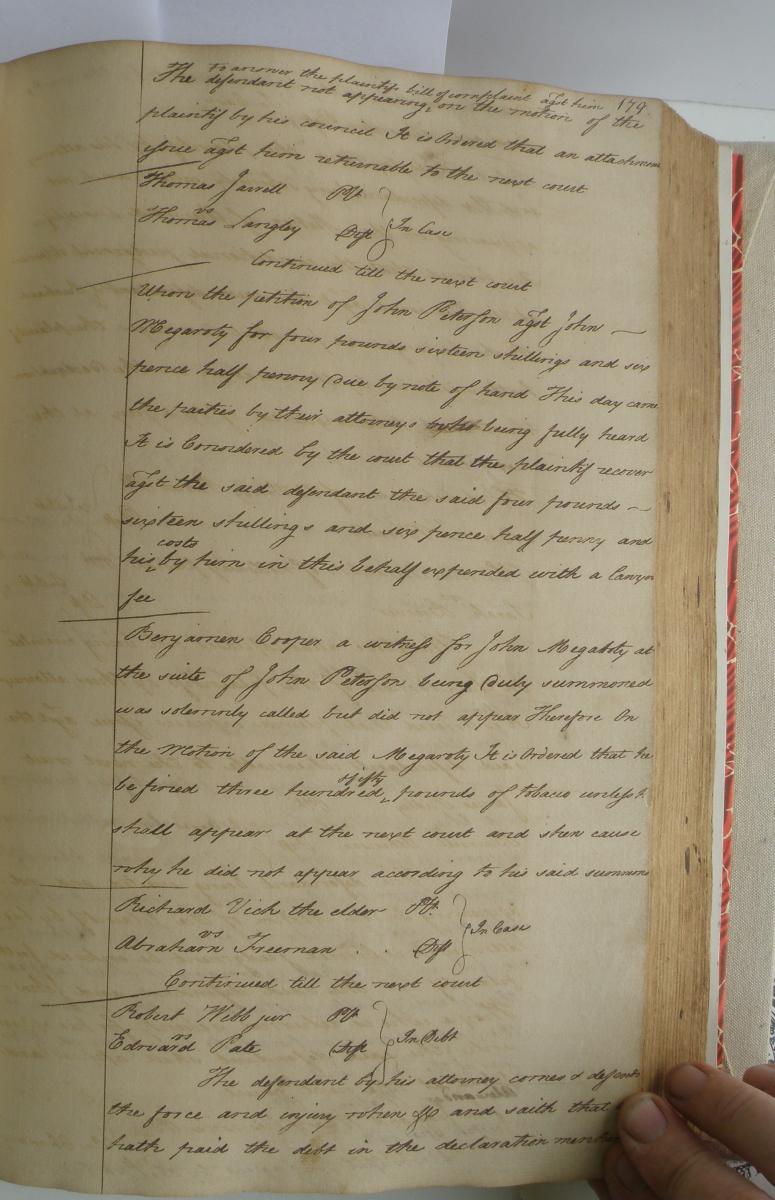 to answer the plaintifs bill of complaint agst him 179
The defendant not appearing, on the motion of the
plaintif by his council It is Ordered that an attachmen
issue agst him returnable to the next court
Thomas Jarrell Plt
vs In Case
Thomas Langley Deft
Continued till the next court
Upon the petition of John Peterson agst John
Megaroty for four pounds sixteen shillings and six
pence half penny due by note of hand This day came
the parties by their attorneys being fully heard
It is Considered by the court that the plaintif recover
agst the said defendant the said four pounds
sixteen shillings and six pence half penny and
costs
his by him in this behalf expended with a lawyer
fee
Benjamen Cooper a witness for John Megaroty at
the suite of John Peterson being duly summoned
was solemnly called but did not appear Therefore On
the Motion of the said Megaroty It is Ordered that he
be fined three hundred & fifty pounds of tobacco unless h
shall appear at the next court and shew cause
why he did not appear according to his said summons
Richard Vick the elder Plt.
vs In Case
Abraham Freeman . . Deft
Continued till the next court
Robert Webb jur Plt
vs In Debt
Edward Pate Deft
The defendant by his attorney comes & defends
the force and injury when &c and saith that
hath paid the debt in the declaration mention